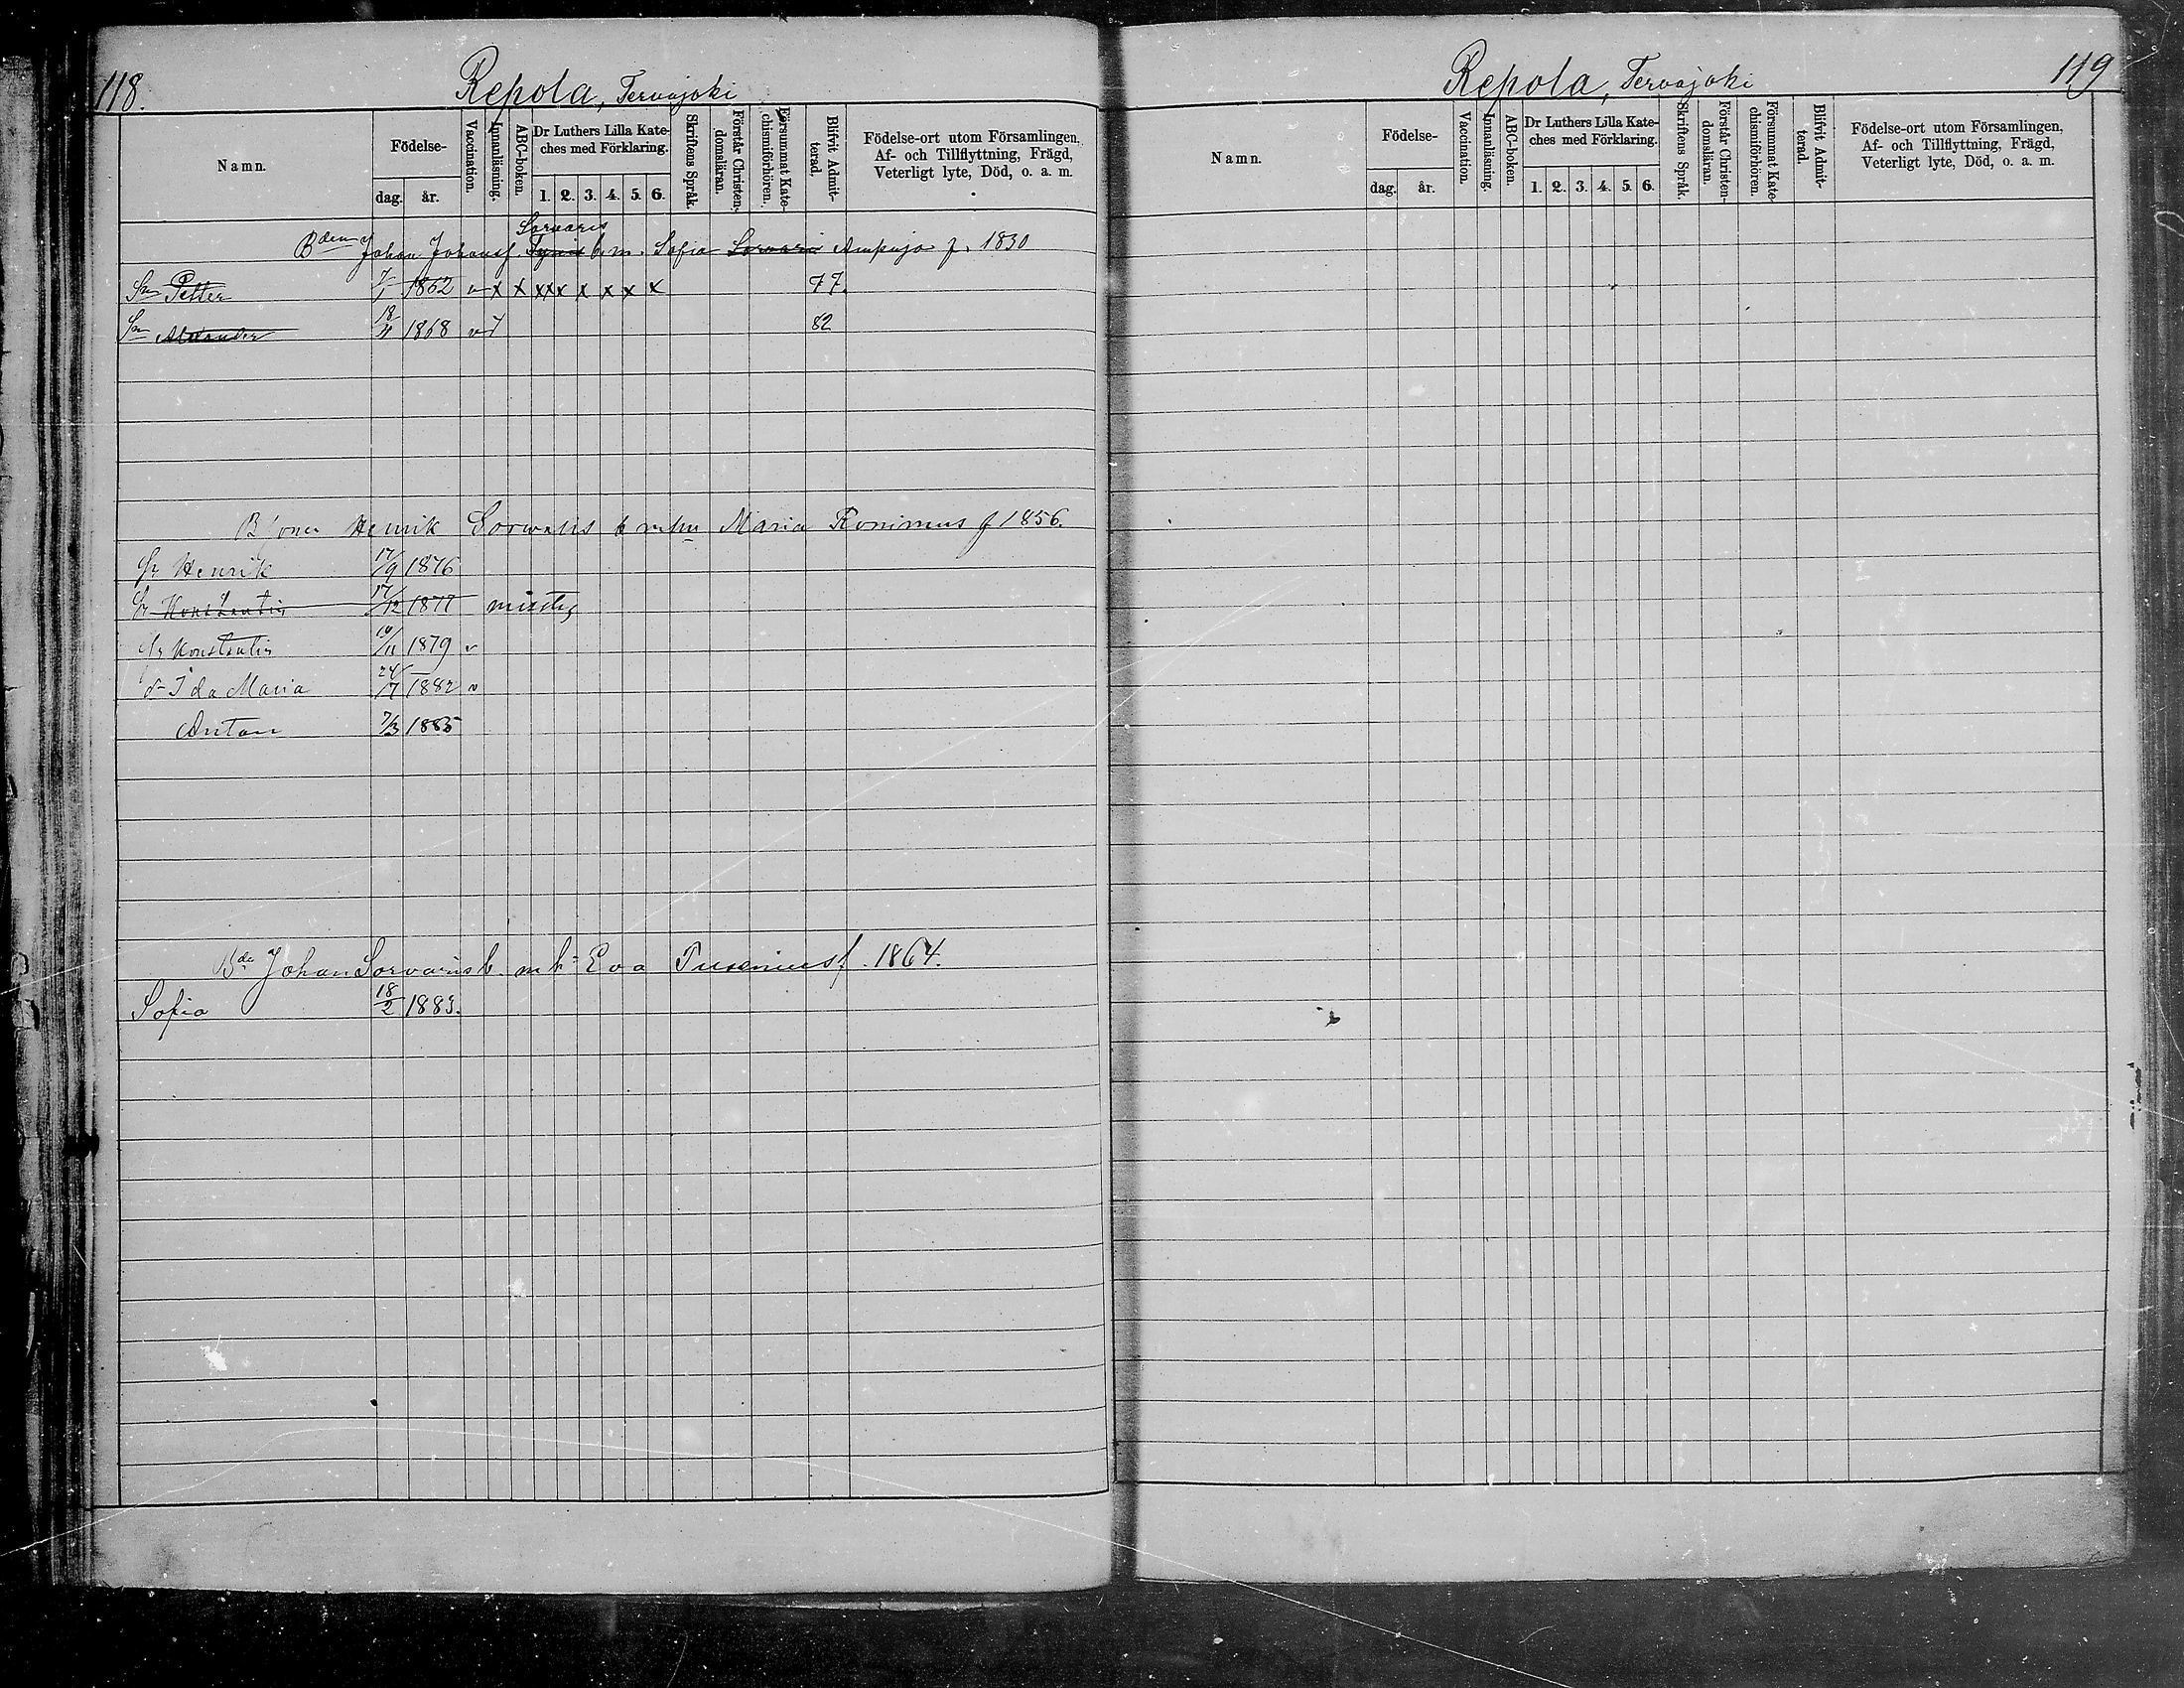 118.
Repola, Tervajoki
Namn.
Födelse-
dag.
år.
Vaccination.
Innanläsning.
ABC-boken.
Dr Luthers Lilla Kate-
ches med Förklaring.
1. 2. 3. 4. 5. 6.
Skriftens Språk.
Förstår Christen-
domsläran.
Försummat Kate-
chismiförhören.
Blifvit Admit-
terad.
Födelse-ort utom Församlingen,
Af- och Tillflyttning, Frägd,
Veterligt lyte, Död, o. a. m.
Sorvaris
Bden Johan Johansf. b. m. Sofia Sorvari Ampuja f. 1830
Sn Petter 7/1 1862 v x x xx x x x x x 77.
Sn Alexander 18/11 1868 v 82
Henrik Sorvalis Maria Ronimus f 1856.
Henrik 17/9 1876
Konstantin 17/12 1877
Konstantin 10/11 1879 v
d- Ida Maria 24/7 1882 v
Anton 7/3 1885
Bde Johan Sorvaris b. m h= Eva Tusenius f. 1864.
Sofia 18/2 1883.
Repola, Tervajoki
119
Namn.
Födelse-
dag.
år.
Vaccination.
Innanläsning.
ABC-boken.
Dr Luthers Lilla Kate-
ches med Förklaring.
1. 2. 3. 4. 5. 6.
Skriftens Språk.
Förstår Christen-
domsläran.
Försummat Kate-
chismiförhören.
Blifvit Admit-
terad.
Födelse-ort utom Församlingen,
Af- och Tillflyttning, Frägd,
Veterligt lyte, Död, o. a. m.